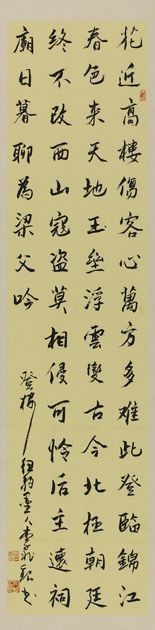 花近高樓傷客心萬方多难此登臨錦江
春色來天地玉壘浮雲變古今北極朝廷
終不改西山寇盜莫相侵可怜后主還祠
廟日暮聊為梁父吟
登楼 纽約墨人李